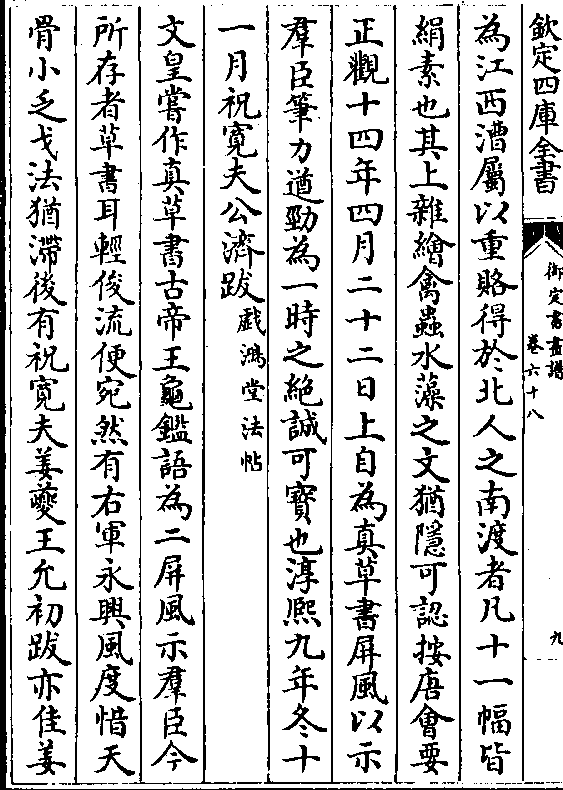 欽定四庫全書
御定書畫譜
卷六十八
九
為江西漕屬以重賂得於北人之南渡者凡十一幅皆
絹素也其上雜繪禽蟲水藻之文猶隱可認按唐會要
正觀十四年四月二十二日上自為真草書屏風以示
羣臣筆力遒勁為一時之絶誠可寳也淳熙九年冬十
一月祝寛夫公濟跋戲鴻堂法帖
文皇嘗作真草書古帝王龜鑑語為二屏風示羣臣今
所存者草書耳輕俊流便宛然有右軍永興風度惜天
骨小乏戈法猶滯後有祝寛夫姜夔王允初跋亦佳姜